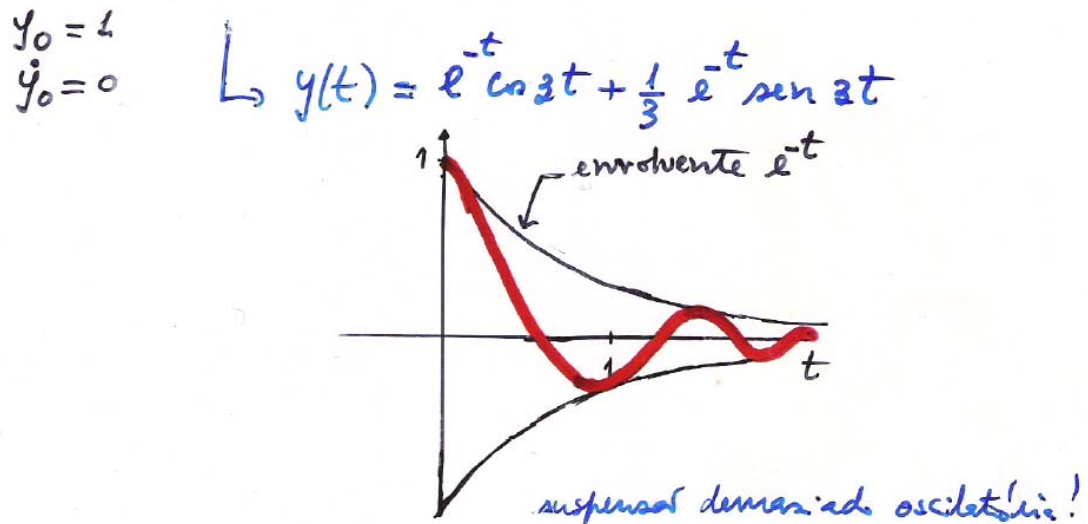 y₀ = 1
ẏ₀ = 0
↳ y(t) = e^{-t} cos 3t + 1/3 e^{-t} sen 3t
1
envolvente e^{-t}
1
t
suspensão demasiado oscilatória!